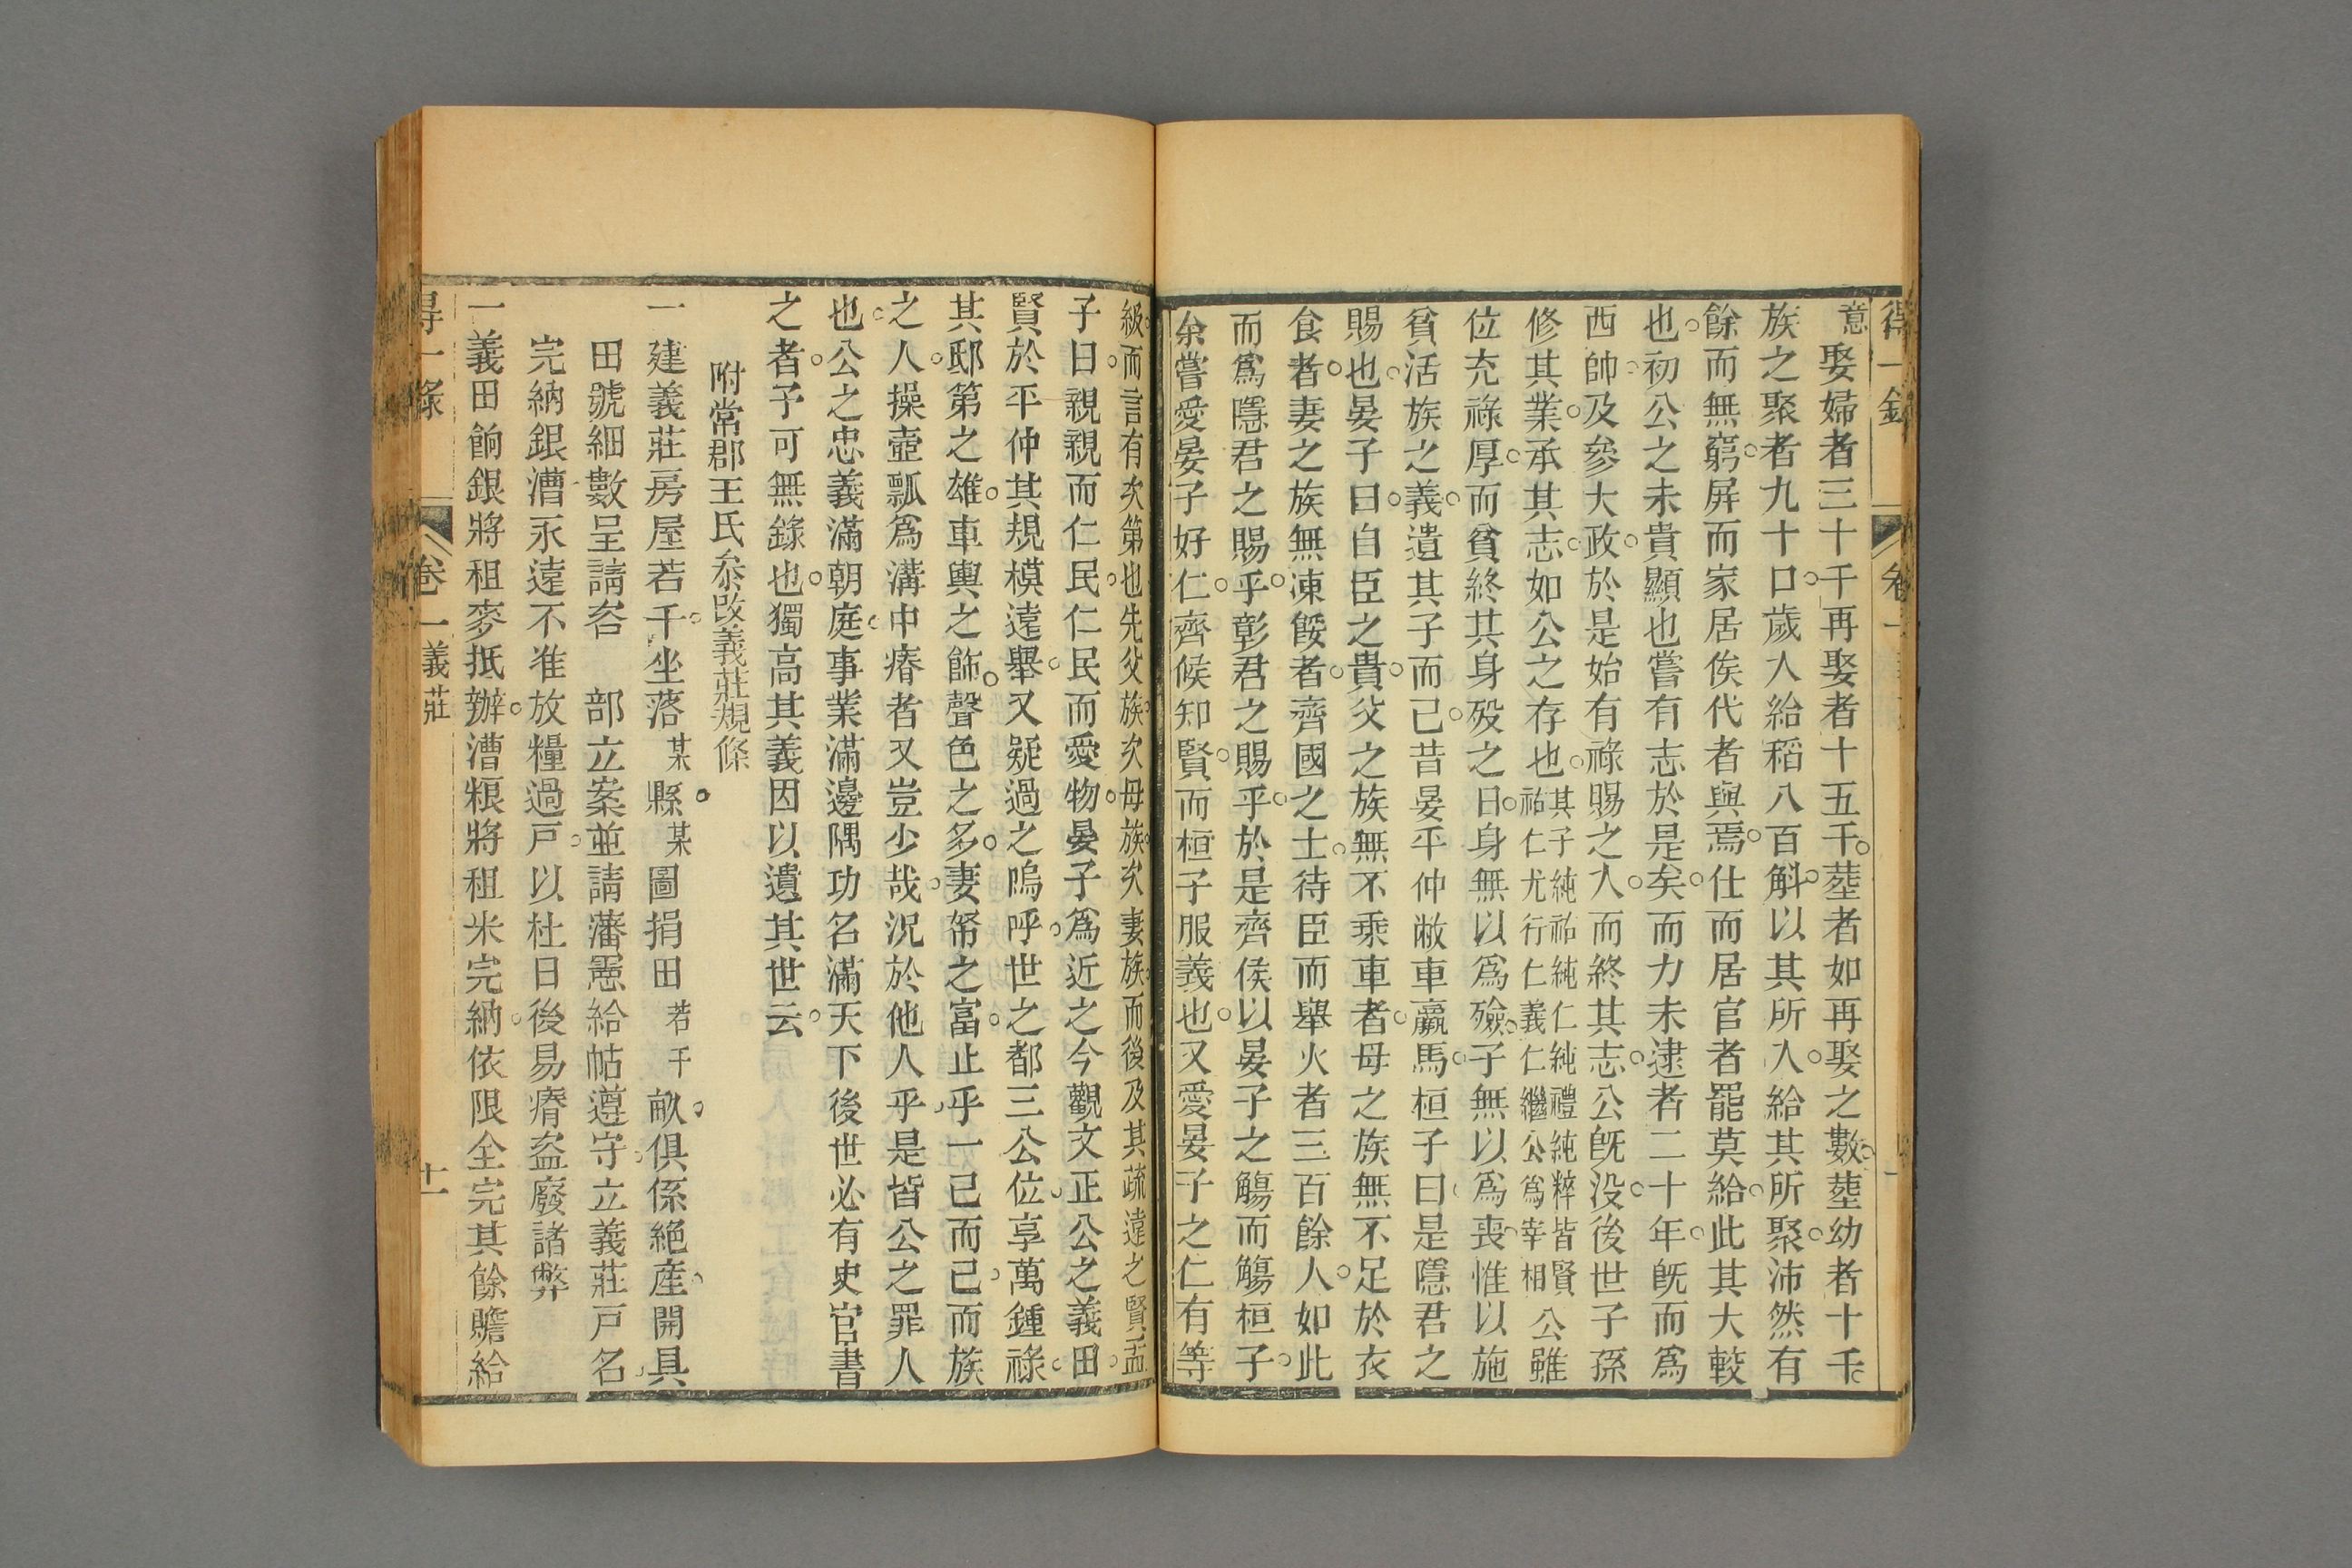 得一錄
卷一
意
娶婦者三十千再娶者十五千塟者如再娶之數塟幼者十千
族之聚者九十口歲人給稻八百斛以其所入給其所聚沛然有
餘而無窮屏而家居俟代者與焉仕而居官者罷莫給此其大較
也初公之未貴顯也嘗有志於是矣而力未逮者二十年旣而爲
西帥及參大政於是始有祿賜之入而終其志公旣没後世子孫
修其業承其志如公之存也其子純祐純仁純禮純粹皆賢祐仁尤行仁義仁繼公爲宰相公雖
位充祿厚而貧終其身歿之日身無以爲殮子無以爲喪惟以施
貧活族之義遺其子而已昔晏平仲敝車羸馬桓子曰是隱君之
賜也晏子曰自臣之貴父之族無不乘車者母之族無不足於衣
食者妻之族無凍餒者齊國之士待臣而舉火者三百餘人如此
而爲隱君之賜乎彰君之賜乎於是齊侯以晏子之觴而觴桓子
余嘗愛晏子好仁齊候知賢而桓子服義也又愛晏子之仁有等
級而言有次第也先父族次母族次妻族而後及其疏遠之賢孟
子曰親親而仁民仁民而愛物晏子爲近之今觀文正公之義田
賢於平仲其規模遠舉又疑過之嗚呼世之都三公位享萬鍾祿
其邸第之雄車輿之飾聲色之多妻帑之富止乎一己而已而族
之人操壺瓢爲溝中瘠者又豈少哉況於他人乎是皆公之罪人
也公之忠義滿朝庭事業滿邊隅功名滿天下後世必有史官書
之者予可無錄也獨高其義因以遺其世云
附常郡王氏叅改義莊規條
一建義莊房屋若干坐落某縣某圖捐田若干畝俱係絶產開具
田號細數呈請咨 部立案並請藩憲給帖遵守立義莊戶名
完納銀漕永遠不准放糧過戶以杜日後易瘠盜廢諸弊
一義田餉銀將租麥抵辦漕粮將租米完納依限全完其餘贍給
得一錄
卷一義莊
十一